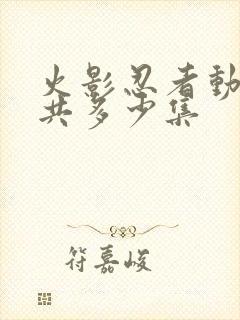 火影忍者動
共多少集
符嘉峻